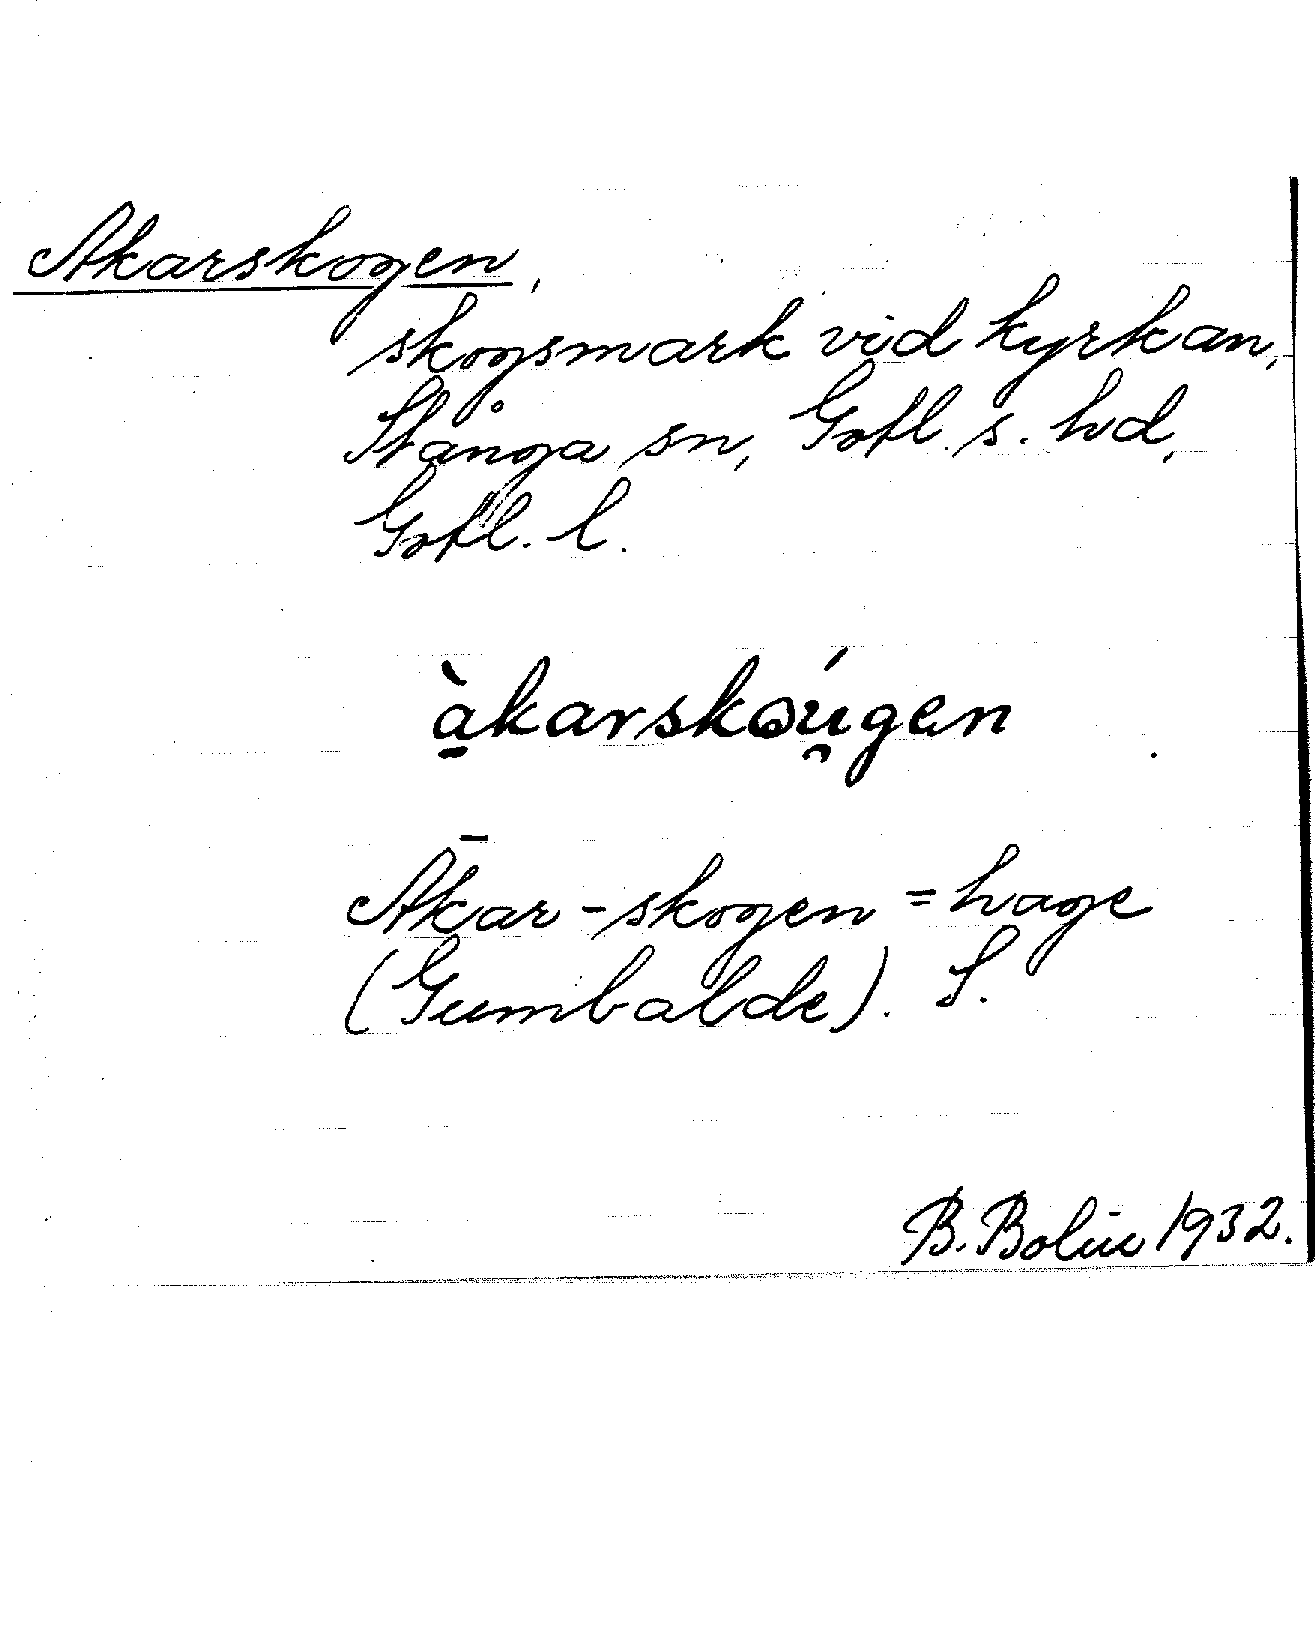 Akarskogen,
skogsmark vid kyrkan,
Stånga sn, Gotl. s. hd,
Gotl. l.
à̱karskɷú̯gen
Ākar-skogen = hage
(Gumbalde). S.
B. Bolin 1932.